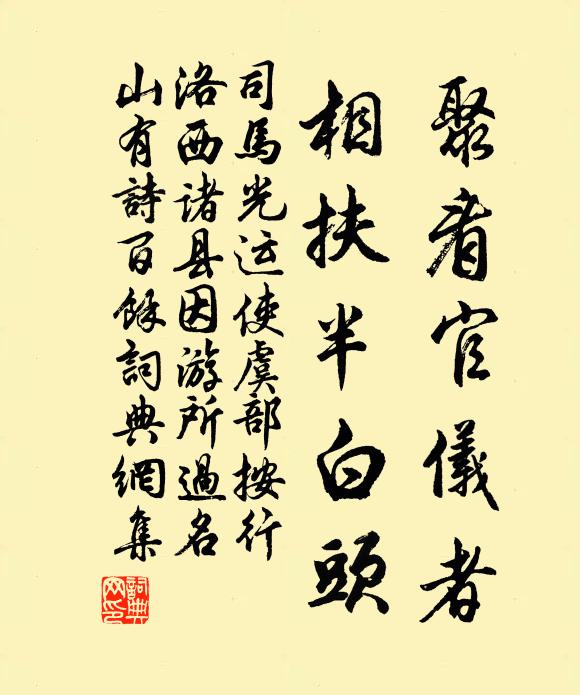 聚看官儀者
相扶半白頭
司馬光运使虞部按行
洛西诸县因游所過名
山有詩百餘詞典網集
詞典网印